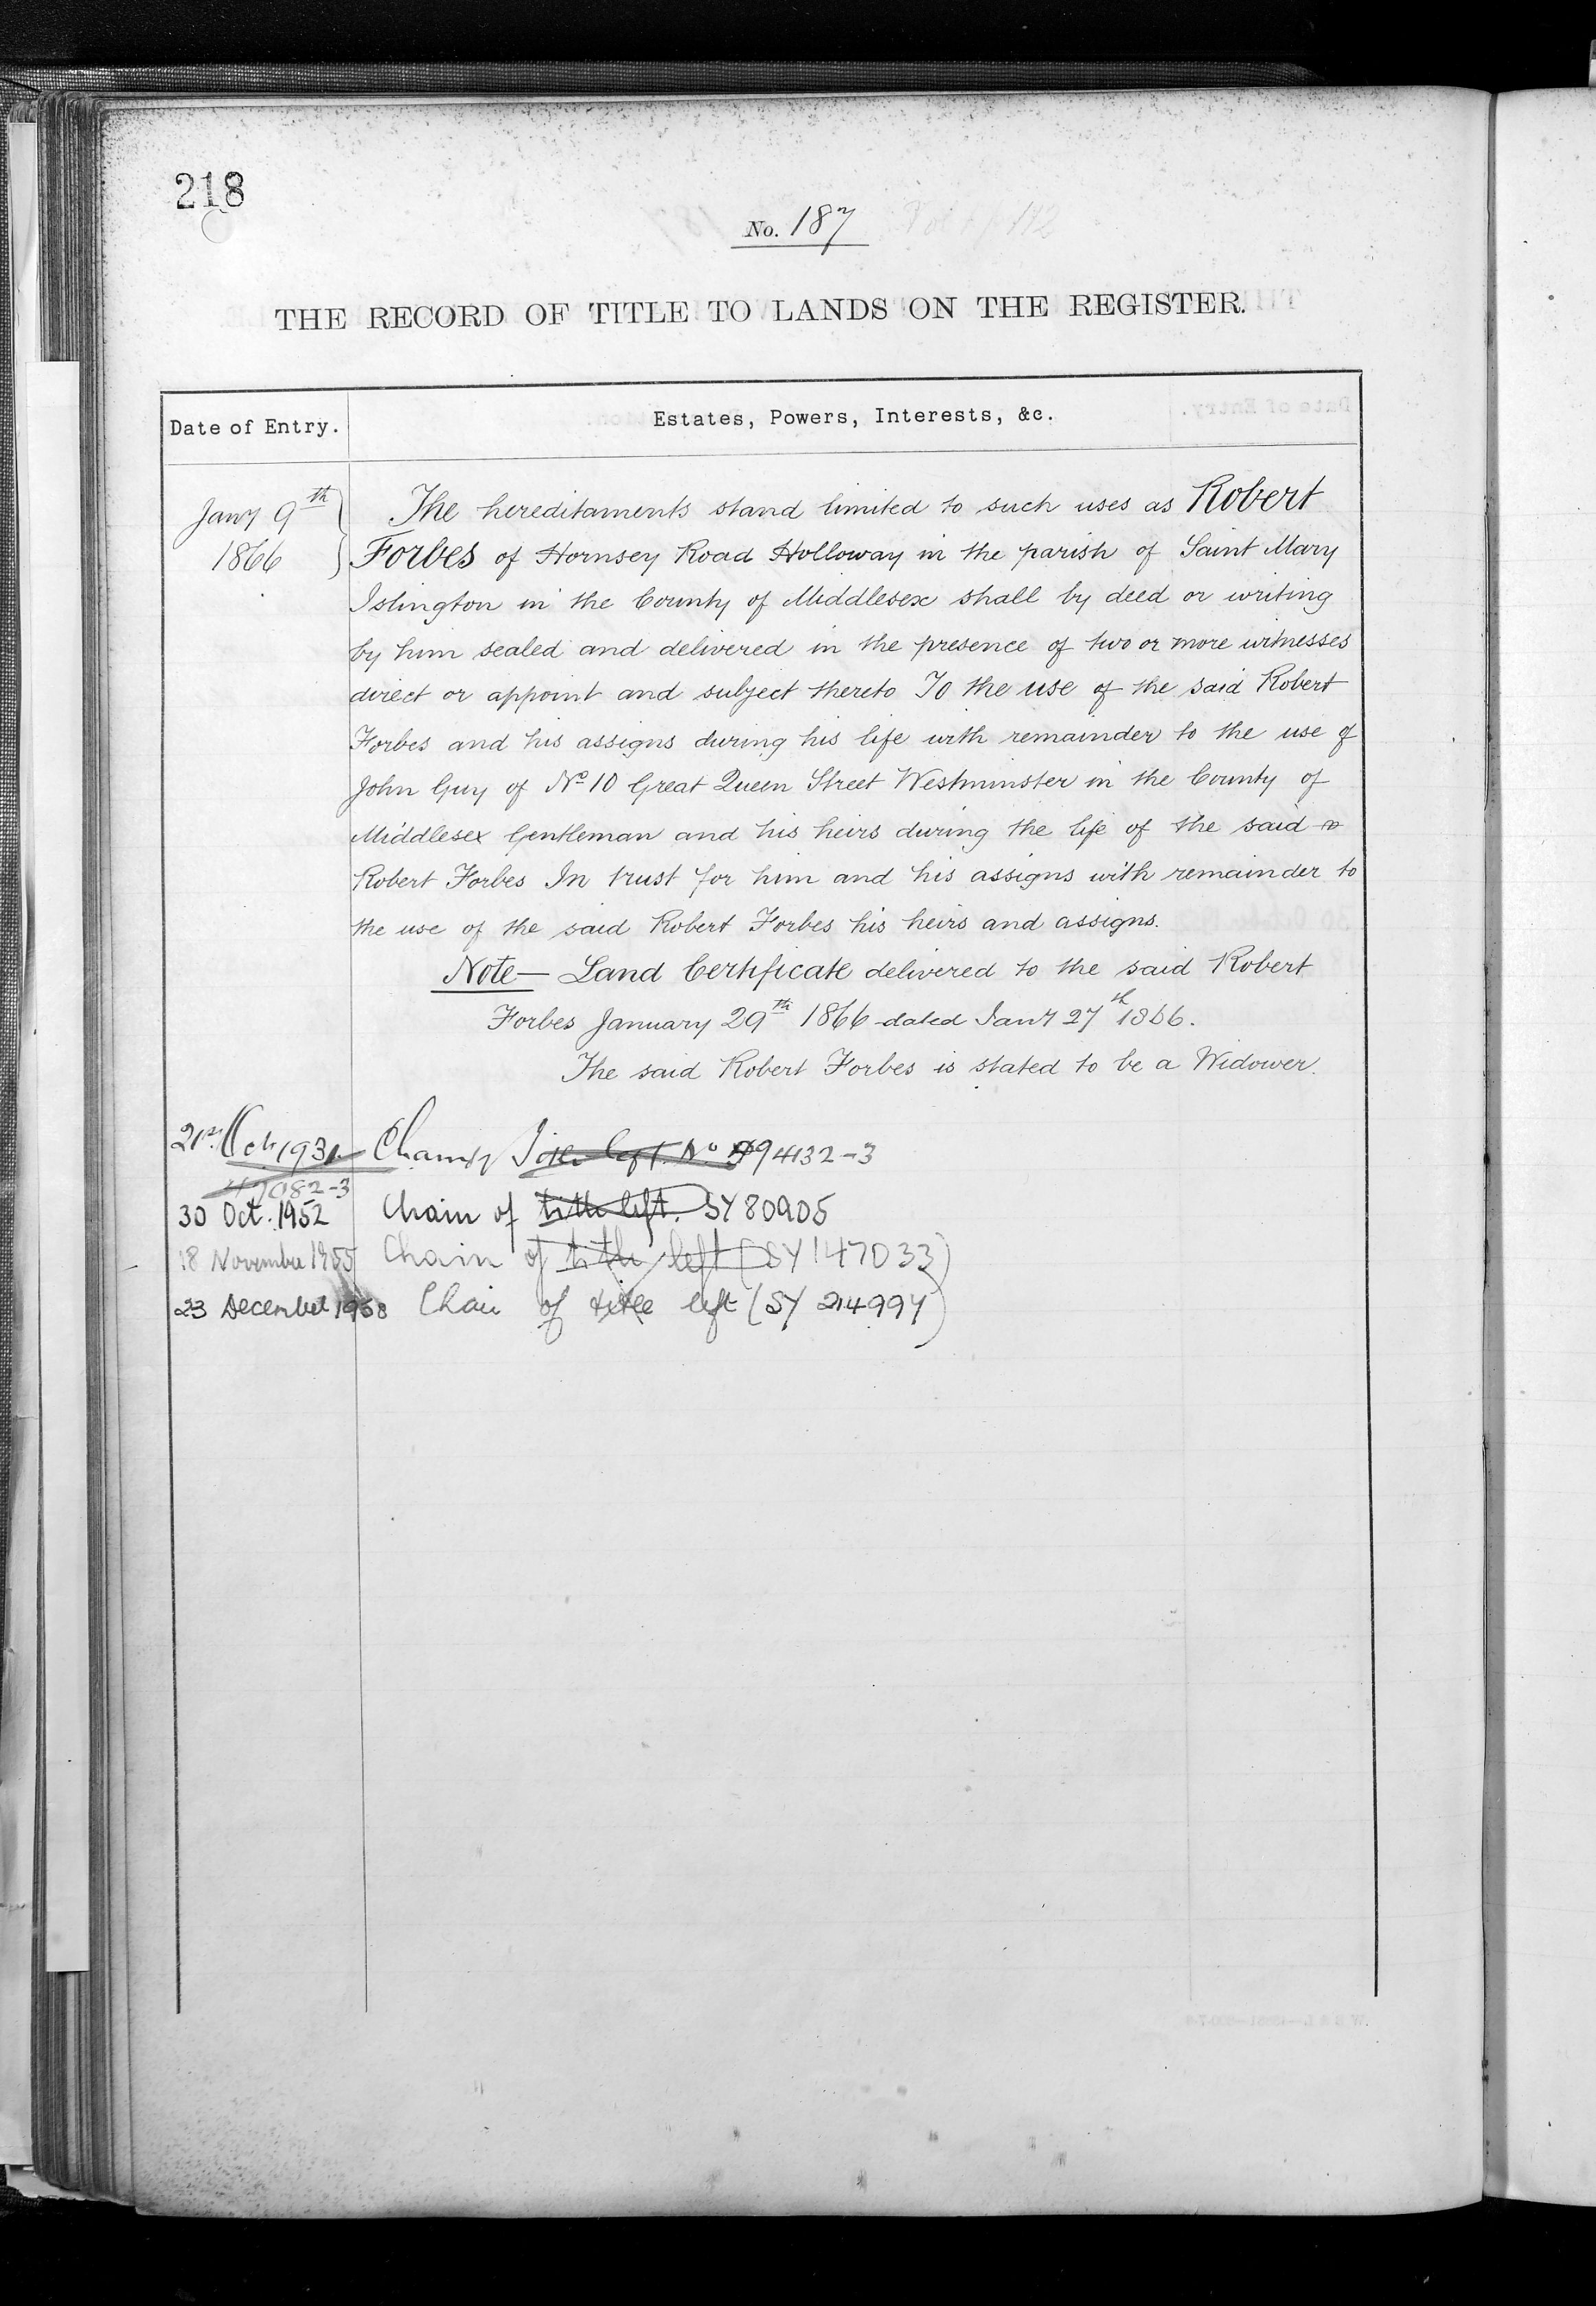 218
No. 187
THE RECORD OF TITLE TO LANDS ON THE REGISTER.
Date of Entry.
Estates, Powers, Interests, &c.
Jany 9th
1866
The hereditaments stand limited to such uses as Robert
Forbes of Hornsey Road Holloway in the parish of Saint Mary
Islington in the County of Middlesex shall by deed or writing
by him sealed and delivered in the presence of two or more witnesses
direct or appoint and subject thereto To the use of the said Robert
Forbes and his assigns during his life with remainder to the use of
John Guy of No 10 Great Queen Street Westminster in the County of
Middlesex Gentleman and his heirs during the life of the said
Robert Forbes In trust for him and his assigns with remainder to
the use of the said Robert Forbes his heirs and assigns.
Note — Land Certificate delivered to the said Robert
Forbes January 29th 1866 dated Jany 27th 1866.
The said Robert Forbes is stated to be a Widower.
21st Oct 1931 Chain of Title left. No 94132-3
47082-3
30 Oct. 1952 Chain of title left. SY 80905
18 November 1955 Chain of title left (SY 147033)
23 December 1958 Chain of title left (SY 214994)